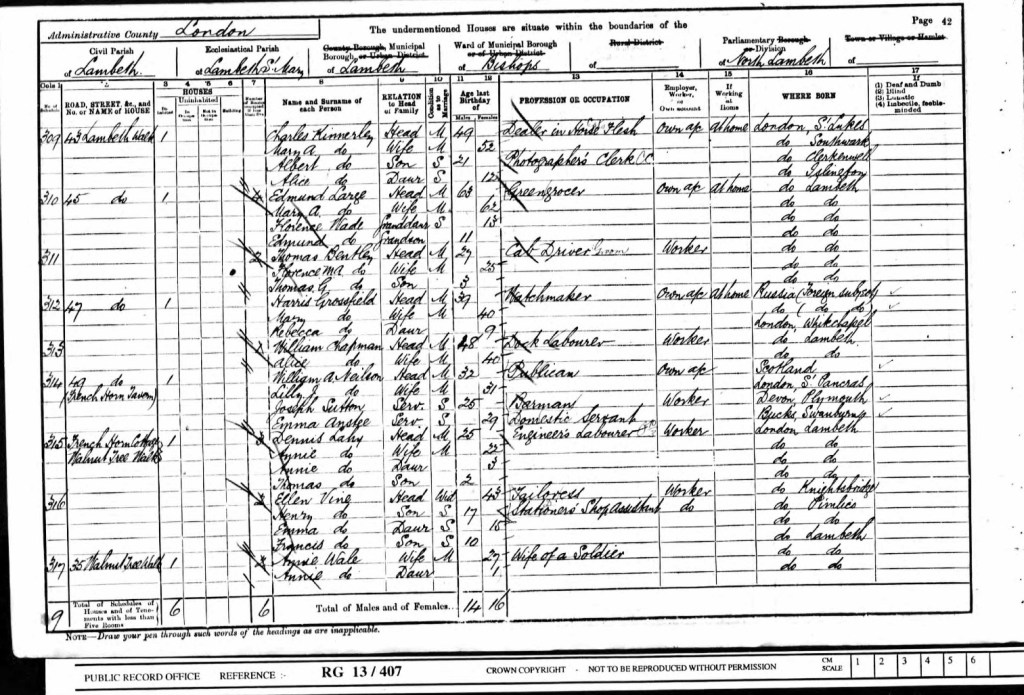 Page 42
Administrative County London
The undermentioned Houses are situate within the boundaries of the
Civil Parish
of Lambeth
Ecclesiastical Parish
of Lambeth St Mary
County Borough, Municipal Borough, or Urban District
of Lambeth
Ward of Municipal Borough or of Urban District
of Bishops
Rural District
of
Parliamentary Borough or Division
of North Lambeth
Town or Village or Hamlet
of
Cols 1 2 3 4 5 6 7 8 9 10 11 12 13 14 15 16 17
No. of Schedule
ROAD, STREET, &c., and No. or NAME of HOUSE
HOUSES
Uninhabited
Name and Surname of each Person
RELATION to Head of Family
Condition as to Marriage
Age last Birthday of
Males Females
PROFESSION OR OCCUPATION
Employer, Worker, or Own account
If Working at Home
WHERE BORN
If
(1) Deaf and Dumb
(2) Blind
(3) Lunatic
(4) Imbecile, feeble-minded
309 43 Lambeth Walk 1 Charles Kinnerley Head M 49 Dealer in Horse Flesh Own a/c At home London, St Lukes
Mary A. do Wife M 52 do Southwark
Albert do Son S 21 Photographer's Clerk do Clerkenwell
Alice do Daur S 12 do Islington
310 45 do 1 4 Edmund Large Head M 63 Greengrocer Own a/c At home do Lambeth
Mary A. do Wife M 62 do do
Florence Wade Granddaur S 13 do do
Edmund do Grandson 11 do do
311 2 Thomas Bentley Head M 27 Cab Driver Groom Worker do do
Florence M A. do Wife M 25 do do
Thomas G. do Son 3 do do
312 47 do 1 Harris Grossfield Head M 39 Watchmaker Own a/c At home Russia (Foreign subject)
Mary do Wife M 40 do (do do)
Rebecca do Daur 9 London, Whitechapel
313 William Chapman Head M 48 Dock Labourer Worker do Lambeth
Alice do Wife M 40 do do
314 49 do 1 William A. Neilson Head M 32 Publican Own a/c Scotland
(French Horn Tavern) Lilly do Wife M 31 London, St Pancras
Joseph Sutton Serv. S 25 Barman Worker Devon, Plymouth
Emma Anstee Serv. S 29 Domestic Servant Bucks, Swanburn
315 French Horn Cottage 1 Dennis Lahy Head M 25 Engineer's Labourer Worker London Lambeth
Walnut Tree Walk Annie do Wife M 22 do do
Annie do Daur 3 do do
Thomas do Son 2 do do
316 Ellen Vine Head Wid 43 Tailoress Worker do Knightsbridge
Henry do Son S 17 Stationers' Shop Assistant do do Pimlico
Emma do Daur S 15 do do
Francis do Son S 10 do Lambeth
317 35 Walnut Tree Walk 1 Annie Wale Wife M 27 Wife of a Soldier do do
Annie do Daur 1 do do
9 Total of Schedules of Houses and of Tenements with less than Five Rooms 6 6 Total of Males and of Females... 14 16
NOTE—Draw your pen through such words of the headings as are inapplicable.
PUBLIC RECORD OFFICE REFERENCE :- RG 13 / 407 CROWN COPYRIGHT - NOT TO BE REPRODUCED WITHOUT PERMISSION CM SCALE 1 2 3 4 5 6